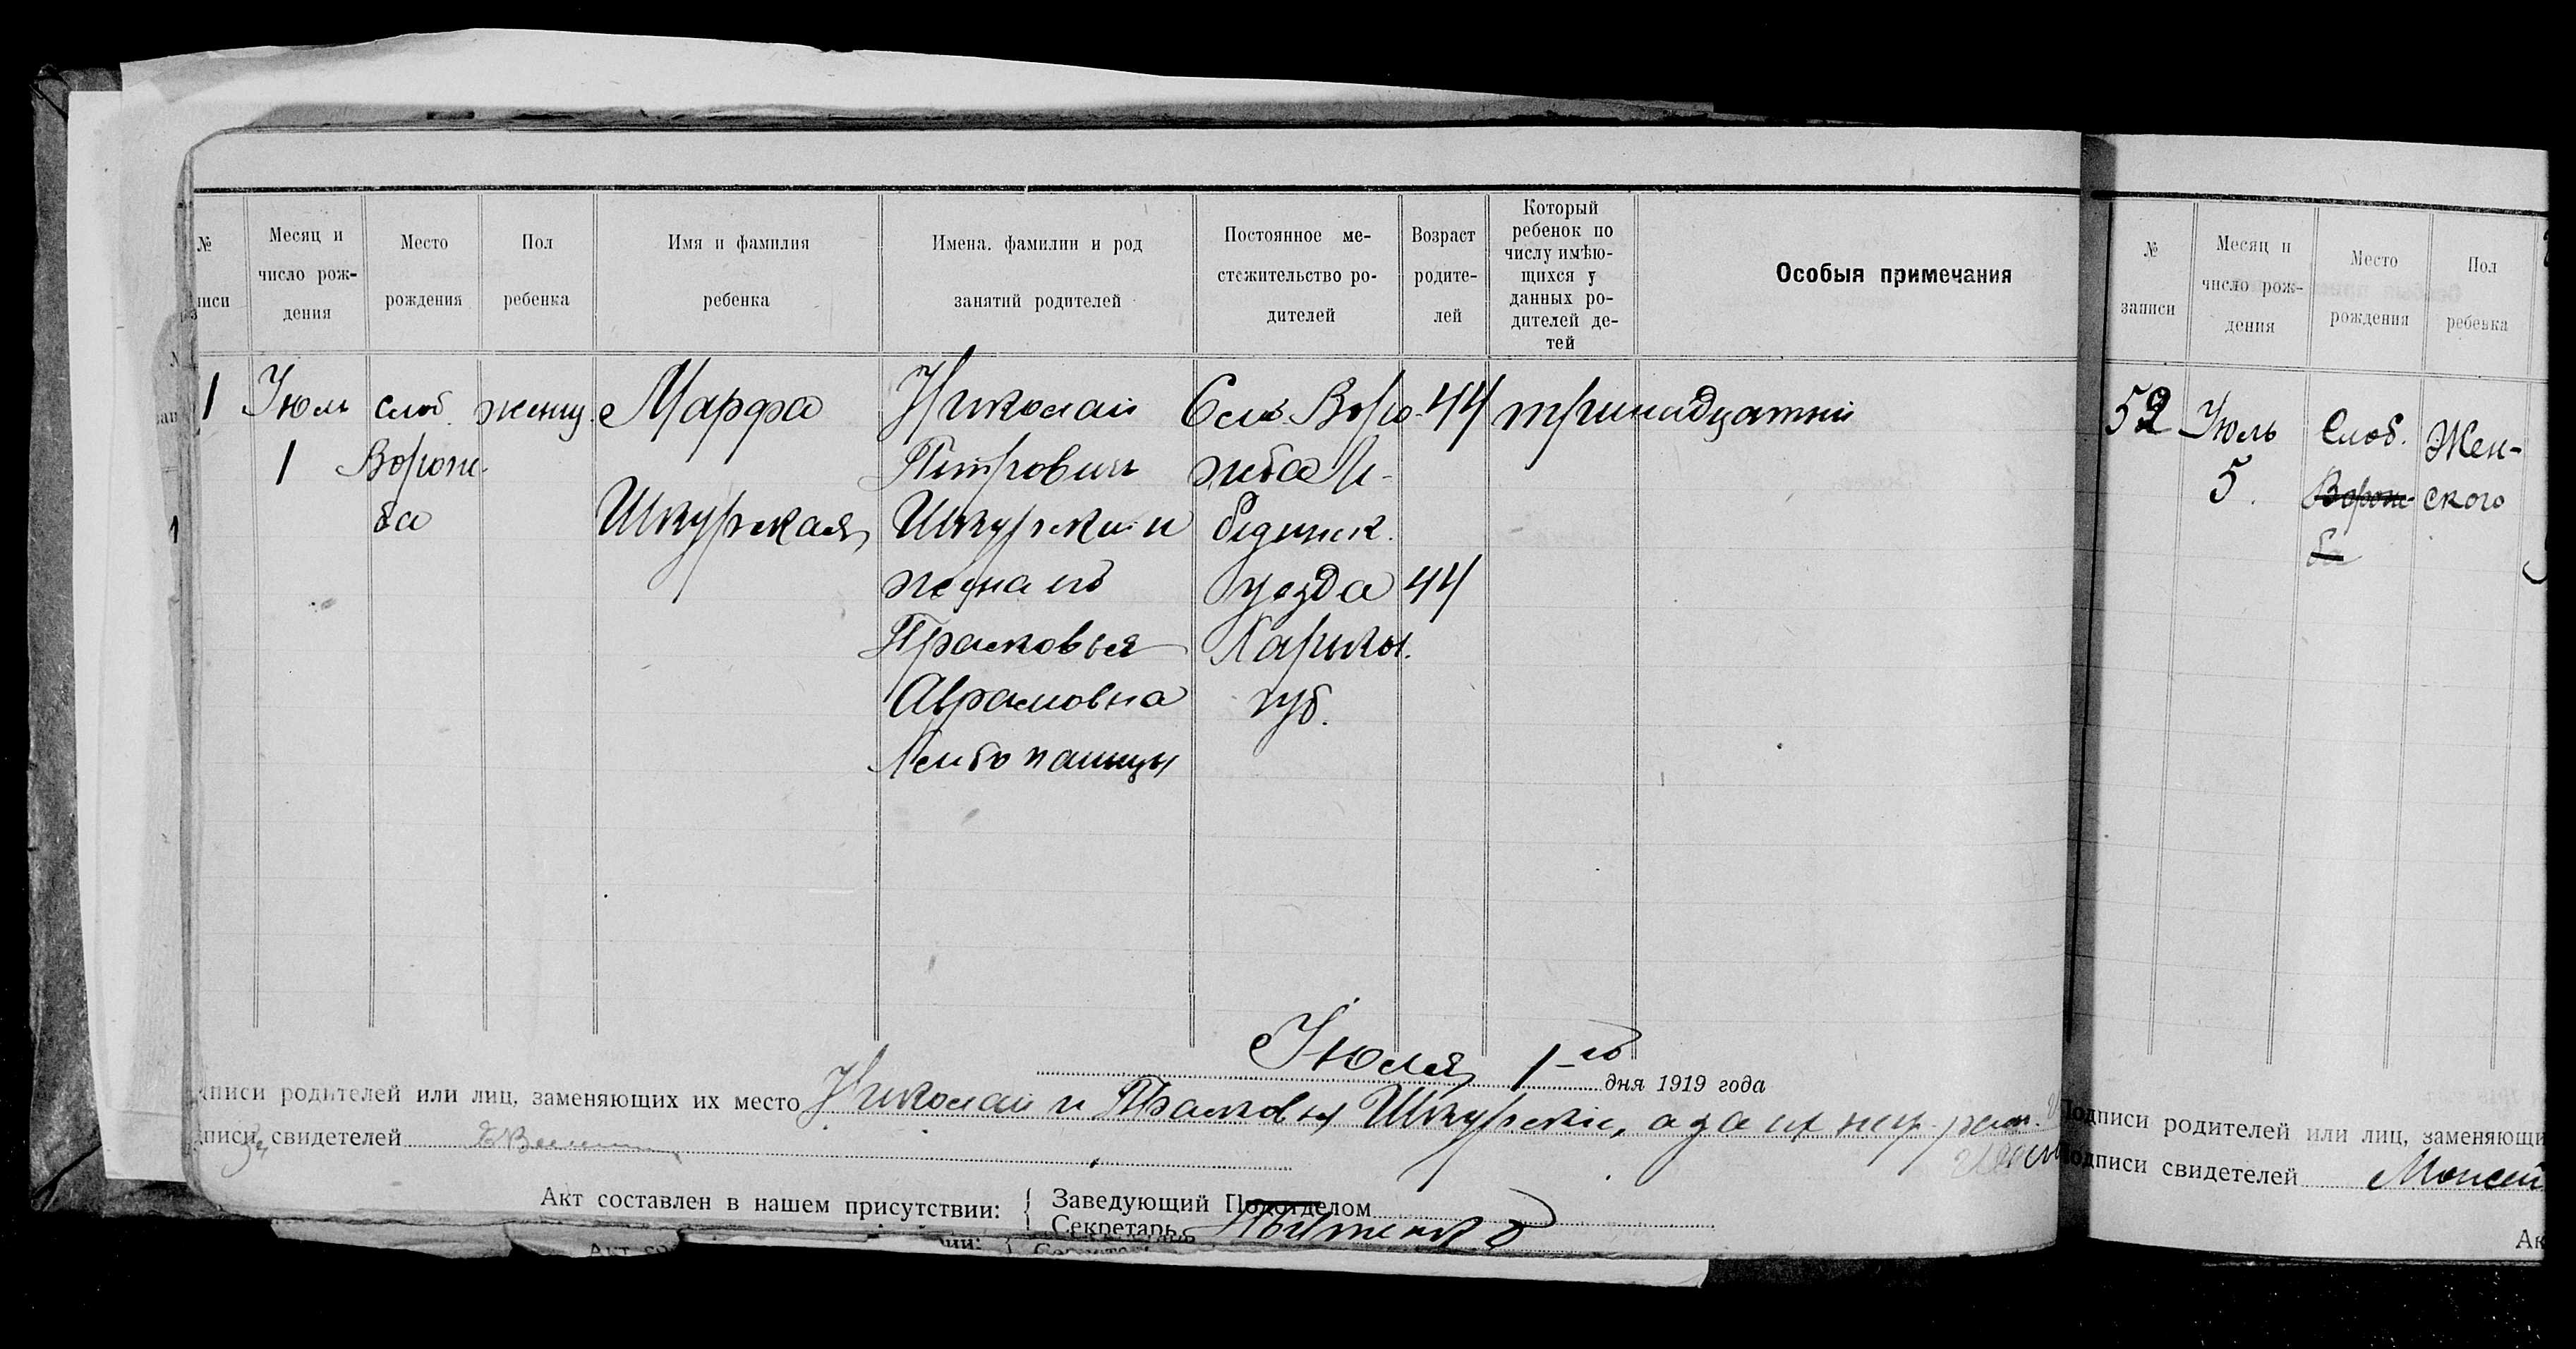 №
писи
Месяц и
число рож-
дения
Место
рождения
Пол
ребенка
Имя и фамилия
ребенка
Имена. фамилии и род
занятий родителей
Постоянное ме-
стожительство ро-
дителей
Возраст
родите-
лей
Который
ребенок по
числу имѣю-
щихся у
данных ро-
дителей де-
тей
Особыя примечания
1
Июль
1
слоб.
Ворож-
ба
женщ.
Марфа
Шкурская
Николай
Петрович
Шкурский
жена его
Прасковья
Аврамовна
Хлебопашцы
Слоб. Воро-
жба Ле-
бединск.
уезда
Харьков.
губ.
44
44
тринадцатый
Июля 1-го дня 1919 года
писи родителей или лиц, заменяющих их место Николай и Прасковья Шкурские, а за их негр. расп.
писи свидетелей
Акт составлен в нашем присутствии:
Заведующий Подотделом
Секретарь
№
записи
Месяц и
число рож-
дения
Место
рождения
Пол
ребенка
52
Июль
5.
Слоб.
Ворож-
ба
Жен-
ского
Подписи родителей или лиц, заменяющи
Подписи свидетелей Моисей
Ак